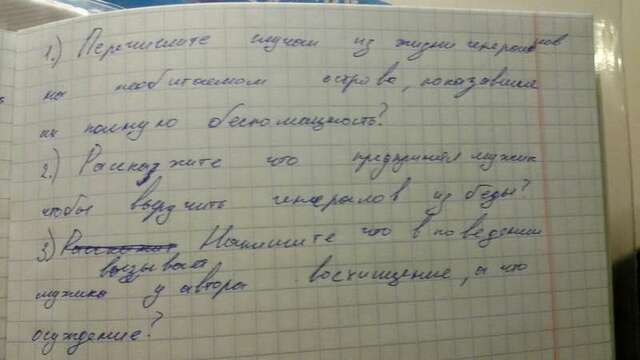 1.) Перечислите случаи из жизни генералов
на необитаемом острове, показавшие
их полную беспомощность?
2.) Расскажите что предпринял мужик
чтобы выручить генералов из беды?
3) Напишите что в поведении
мужика вызывает у автора восхищение, а что
осуждение?